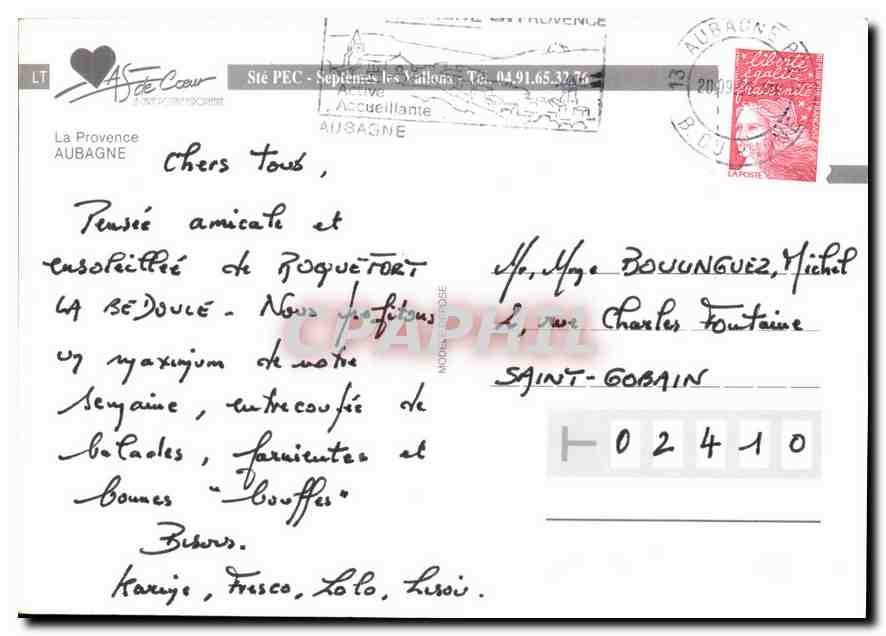 LT
AS de Cœur
Sté PEC - Septèmes les Vallons - Tél. 04.91.65.32.76
EN PROVENCE
Active
Accueillante
AUBAGNE
13 AUBAGNE
B. DU
liberté
égalité
fraternité
LA POSTE
La Provence
AUBAGNE
Chers tous,
Pensée amicale et
ensoleillée de ROQUEFORT
LA BEDOULE. Nous profitons
un maximum de notre
semaine, entrecoupée de
balades, farnientes et
bonnes "bouffes"
Bisous.
Karine, Fresco, Lolo,
MODELE DEPOSE
CPAPHIL
Mr, Mme BOULINGUEZ, Michel
2, rue Charles Fontaine
SAINT-GOBAIN
02410